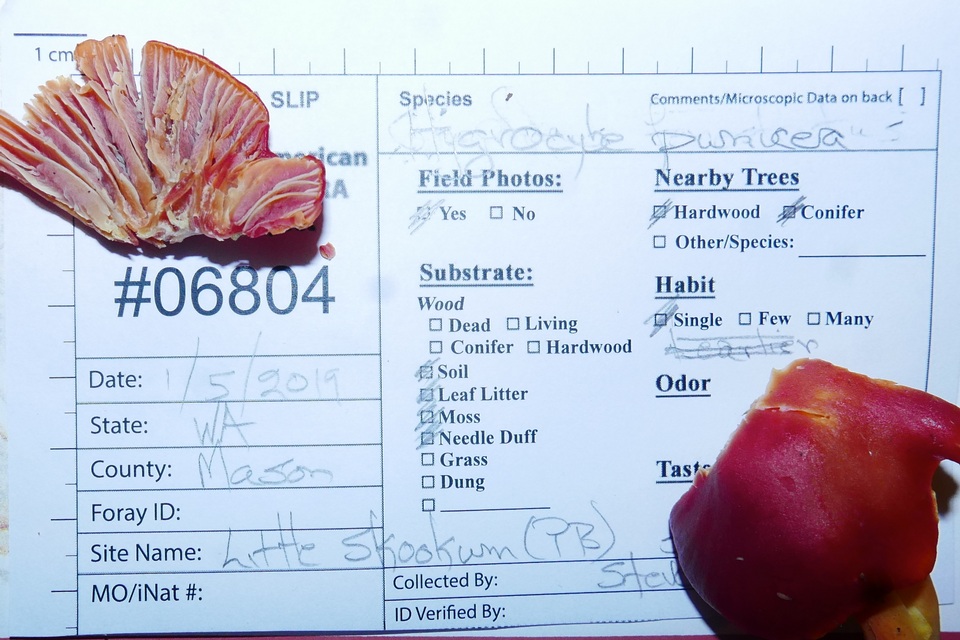 1 cm
SLIP
erican
RA
#06804
Date: 1/5/2019
State: WA
County: Mason
Foray ID:
Site Name: Little Skookum (PB)
MO/iNat #:
Species
Comments/Microscopic Data on back [ ]
Hygrocybe punicea
Field Photos:
☐ Yes ☐ No
Substrate:
Wood
☐ Dead ☐ Living
☐ Conifer ☐ Hardwood
☐ Soil
☐ Leaf Litter
☐ Moss
☐ Needle Duff
☐ Grass
☐ Dung
☐
Nearby Trees
☐ Hardwood ☐ Conifer
☐ Other/Species:
Habit
☐ Single ☐ Few ☐ Many
Odor
Taste
Collected By: Stev
ID Verified By: